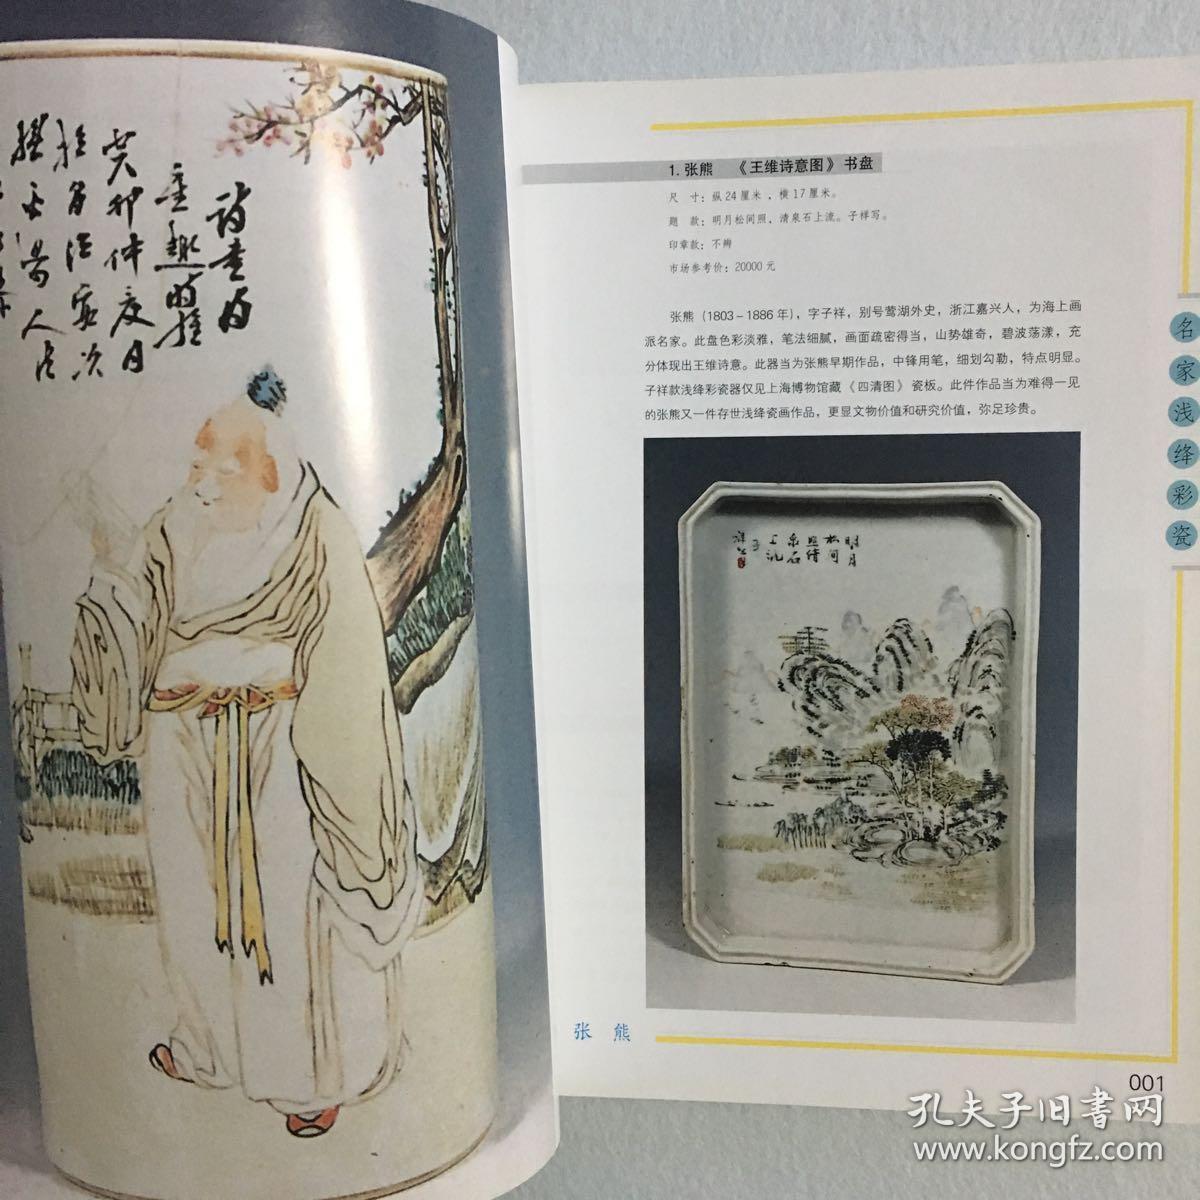 1. 张熊 《王维诗意图》书盘
尺 寸：纵24厘米，横17厘米。
题 款：明月松间照，清泉石上流。子祥写。
印章款：不辨
市场参考价：20000元
张熊（1803－1886年），字子祥，别号鸳湖外史，浙江嘉兴人，为海上画
派名家。此盘色彩淡雅，笔法细腻，画面疏密得当，山势雄奇，碧波荡漾，充
分体现出王维诗意。此器当为张熊早期作品，中锋用笔，细划勾勒，特点明显。
子祥款浅绛彩瓷器仅见上海博物馆藏《四清图》瓷板。此件作品当为难得一见
的张熊又一件存世浅绛瓷画作品，更显文物价值和研究价值，弥足珍贵。
明月
松间
照清
泉石
上流
子
祥写
名家浅绛彩瓷
张 熊
001
癸卯仲夏月
孔夫子旧书网
www.kongfz.com